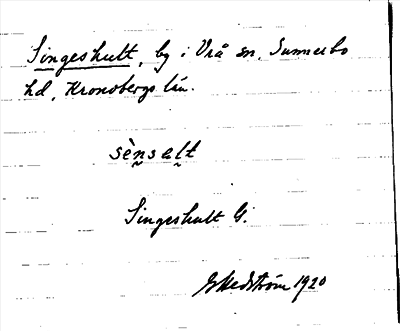 Singeshult, by i Vrå sn, Sunnerbo
hd, Kronobergs län.
sènsalt
Singeshult G.
GHedström 1920